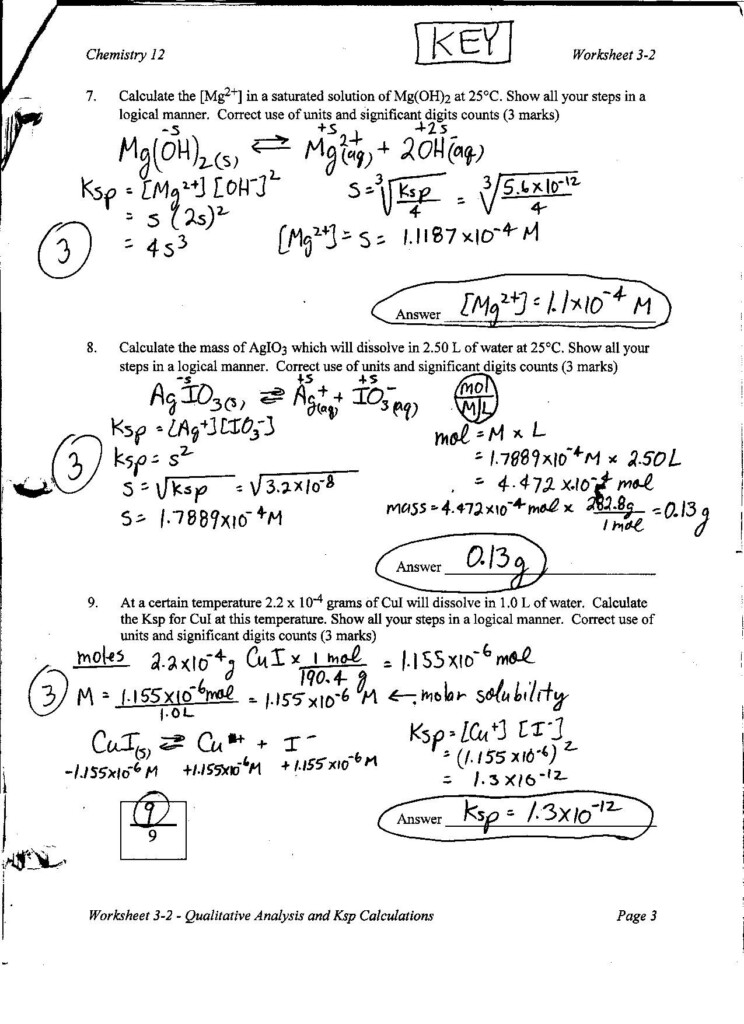 KEY
Chemistry 12 Worksheet 3-2
7. Calculate the [Mg²⁺] in a saturated solution of Mg(OH)₂ at 25°C. Show all your steps in a
logical manner. Correct use of units and significant digits counts (3 marks)
-s +s +2s
Mg(OH)₂(s) ⇌ Mg²⁺(aq) + 2OH⁻(aq)
Ksp = [Mg²⁺] [OH⁻]² S = ³√Ksp/4 = ³√5.6 x 10⁻¹²/4
= s (2s)²
= 4s³ [Mg²⁺] = s = 1.1187 x 10⁻⁴ M
3
Answer [Mg²⁺] = 1.1 x 10⁻⁴ M
8. Calculate the mass of AgIO₃ which will dissolve in 2.50 L of water at 25°C. Show all your
steps in a logical manner. Correct use of units and significant digits counts (3 marks)
-s +s +s
AgIO₃(s) ⇌ Ag⁺(aq) + IO₃⁻(aq)
mol
M|L
Ksp = [Ag⁺][IO₃⁻]
mol = M x L
3
Ksp = s²
= 1.7889 x 10⁻⁴ M x 2.50 L
S = √Ksp = √3.2 x 10⁻⁸
= 4.472 x 10⁻⁴ mol
S = 1.7889 x 10⁻⁴ M
mass = 4.472 x 10⁻⁴ mol x 282.8g/1 mol = 0.13 g
Answer 0.13g
9. At a certain temperature 2.2 x 10⁻⁴ grams of CuI will dissolve in 1.0 L of water. Calculate
the Ksp for CuI at this temperature. Show all your steps in a logical manner. Correct use of
units and significant digits counts (3 marks)
moles 2.2 x 10⁻⁴ g CuI x 1 mol/190.4 g = 1.155 x 10⁻⁶ mol
3
M = 1.155 x 10⁻⁶ mol/1.0L = 1.155 x 10⁻⁶ M ← molar solubility
CuI(s) ⇌ Cu⁺ + I⁻
-1.155x10⁻⁶ M +1.155x10⁻⁶ M +1.155 x10⁻⁶ M
Ksp = [Cu⁺] [I⁻]
= (1.155 x10⁻⁶)²
= 1.3 x 10⁻¹²
Answer Ksp = 1.3 x 10⁻¹²
9
9
Worksheet 3-2 - Qualitative Analysis and Ksp Calculations Page 3